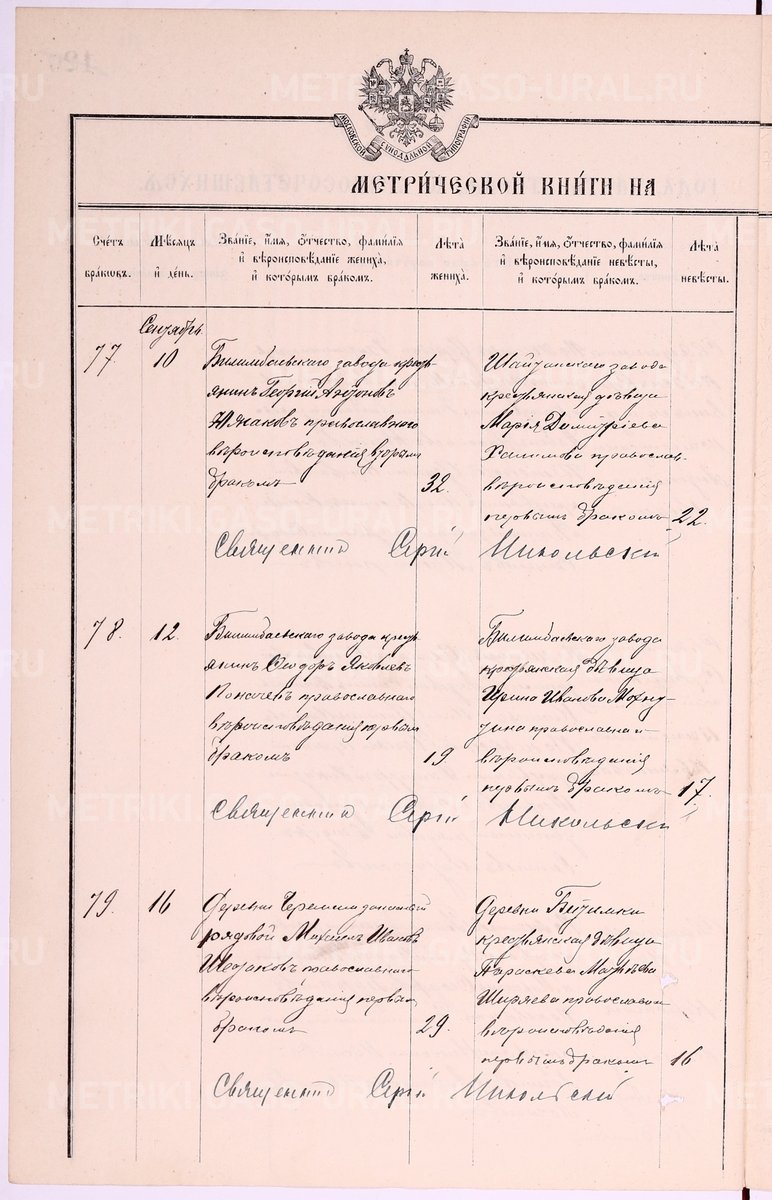 МОСКОВСКОЙ СѴНОДАЛЬНОЙ ТИПОГРАФІИ
МЕТРИ́ЧЕСКОЙ КНИ́ГИ НА
Сче́тъ бра́ковъ.
Мѣ́сяцъ и҆ де́нь.
Зва́нїе, и҆́мя, ѻ҆́тчество, фами́лїя
и҆ вѣроисповѣ́данїе жениха̀,
и҆ кото́рымъ бра́комъ.
Лѣ́та жениха̀.
Зва́нїе, и҆́мя, ѻ҆́тчество, фами́лїя
и҆ вѣроисповѣ́данїе невѣ́сты,
и҆ кото́рымъ бра́комъ.
Лѣ́та невѣ́сты.
Сентябрь
77.
10
Билимбаевскаго завода кресть-
янинъ Георгій Антоновъ
православнаго
вѣроисповѣданія вторымъ
бракомъ
32.
Шайтанскаго завода
крестьянская дѣвица
Марія Димитріева
православ.
вѣроисповѣданія
первымъ бракомъ
22.
Священникъ Сергій Никольскій
78.
12.
Билимбаевскаго завода кресть
янинъ Ѳеодоръ Яковлевъ
православнаго
вѣроисповѣданія первымъ
бракомъ
19
Билимбаевскаго завода
крестьянская дѣвица
Ирина Иванова
православнаго
вѣроисповѣданія
первымъ бракомъ
17.
Священникъ Сергій Никольскій
79.
16
Деревни запасный
рядовой Михаилъ Ивановъ
православнаго
вѣроисповѣданія первымъ
бракомъ
29.
Деревни
крестьянская дѣвица
Параскева Матвѣева
Ширяева православнаго
вѣроисповѣданія
первымъ бракомъ
16
Священникъ Сергій Никольскій
METRIKI.GASO-URAL.RU